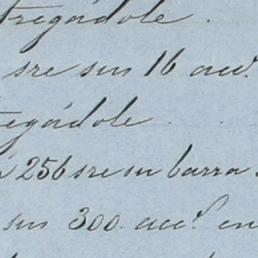 tregádole.
sre sus 16 accs.
tegádole
256 sre su barra
sus 300. accs. en